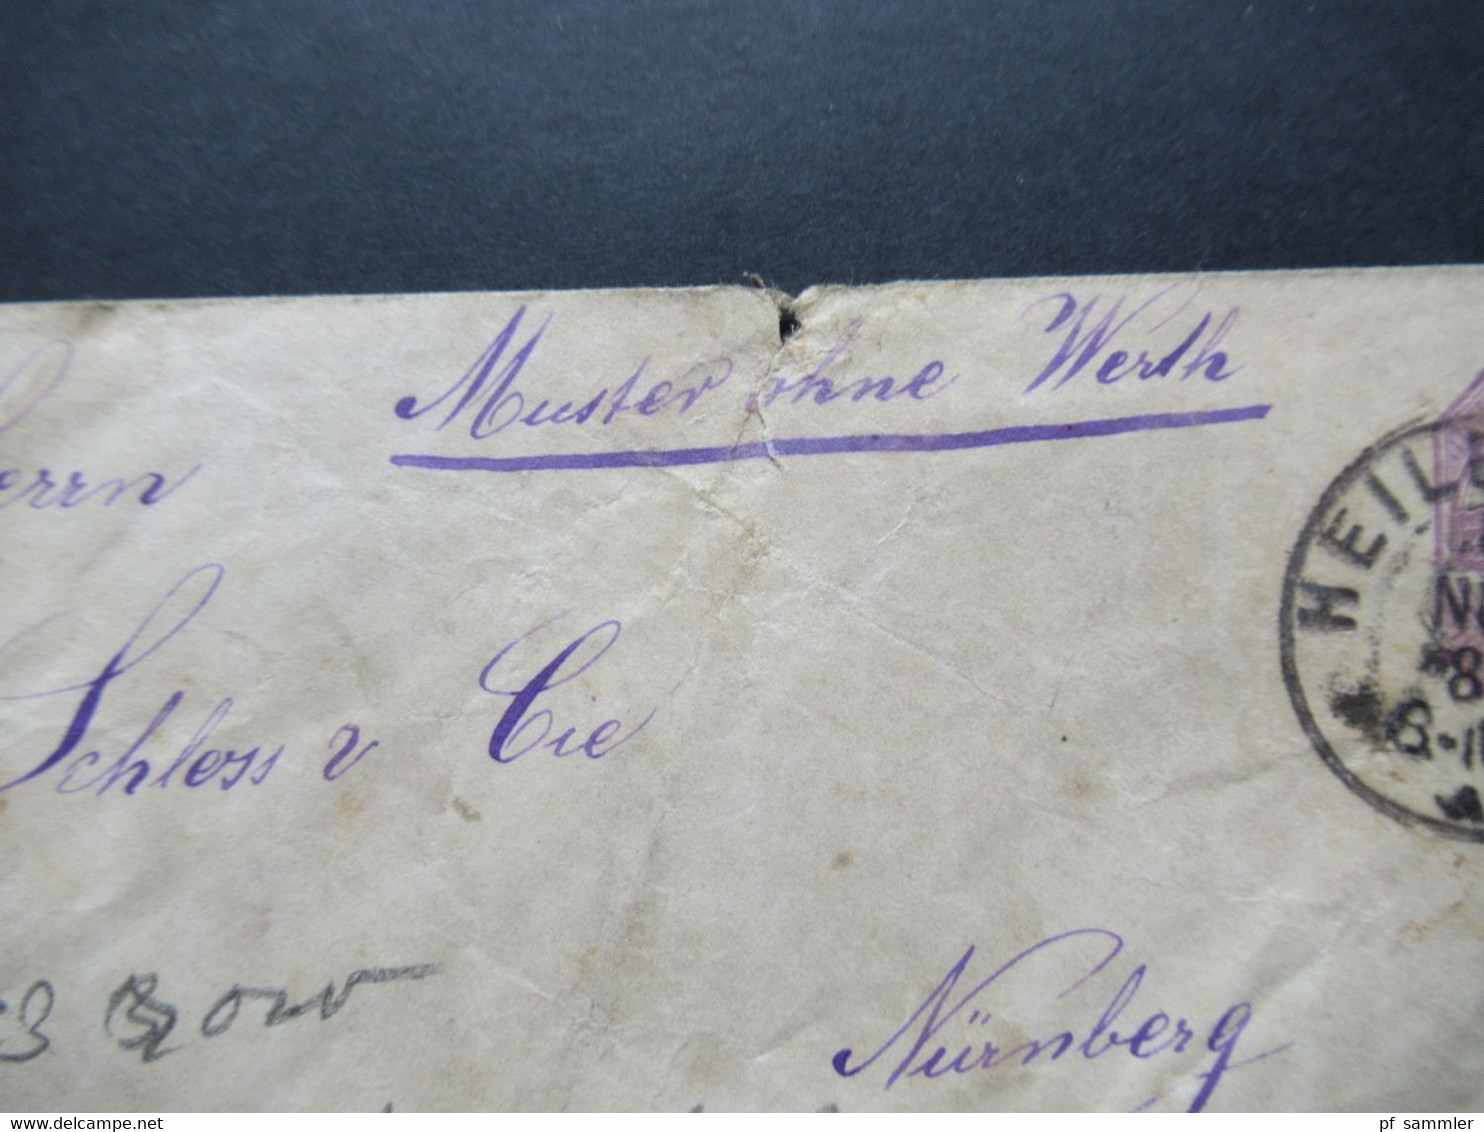 Muster ohne Werth
Herrn
Schloss & Cie
Nürnberg
HEILB
N
8
8-1
www.delcampe.net
pf_sammler